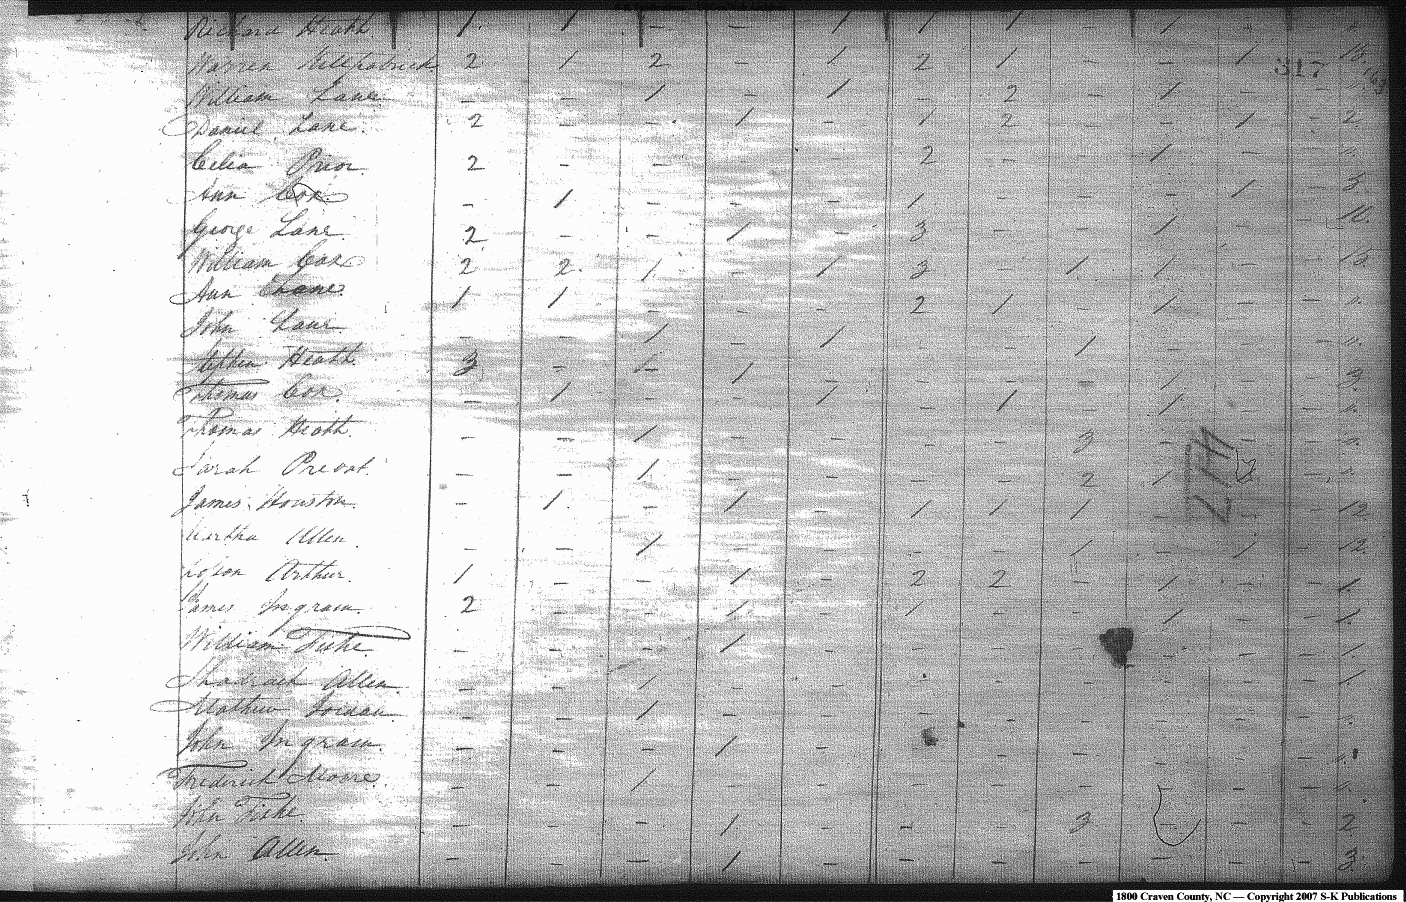 Richard Heath / / - - / / / - / - - -
Warren Killpatrick 2 / 2 - / 2 / - - / - 16.
317
William Lane - - / - / - 2 - / - -
Daniel Lane. 2 - - / - / 2 - - / - 2
Celia Prior. 2 - - - - 2 - - / - -
Ann Cox - / - - - / - - - / - 3
George Lane. 2 - - / - 3 - - / - - 16.
William Cox 2 2. / - / 3 - / / - -
Ann Lane. / / - - - 2 / - / - -
John Lane - - / - / - - / - - -
Stephen Heath. 3 - / / - - - - / - - 3.
Thomas Cox. - / - - / - / - / - -
Thomas Heath. - - / - - - - 3
Sarah Prevat. - - / - - - - 2 / - -
James Houston. - / - / - / / / - - -
Martha Allen. - - / - - - - / - / - 12.
Arthur. / - - / - 2 2 - / - -
James Ingram. 2 - - / - / - - / - -
William Fishe. - - - / - - - - - - - /.
Shadrach Allen. - - / - - - - - - - - /
Mathew Jordan - - / - - - - - - - -
John Ingram - - - / - - - - - - -
Frederick Moore. - - / - - - - - - - -
John Fishe. - - - / - - - 3 - - - 2
John Allen. - - - / - - - - - - - 3.
1800 Craven County, NC — Copyright 2007 S-K Publications